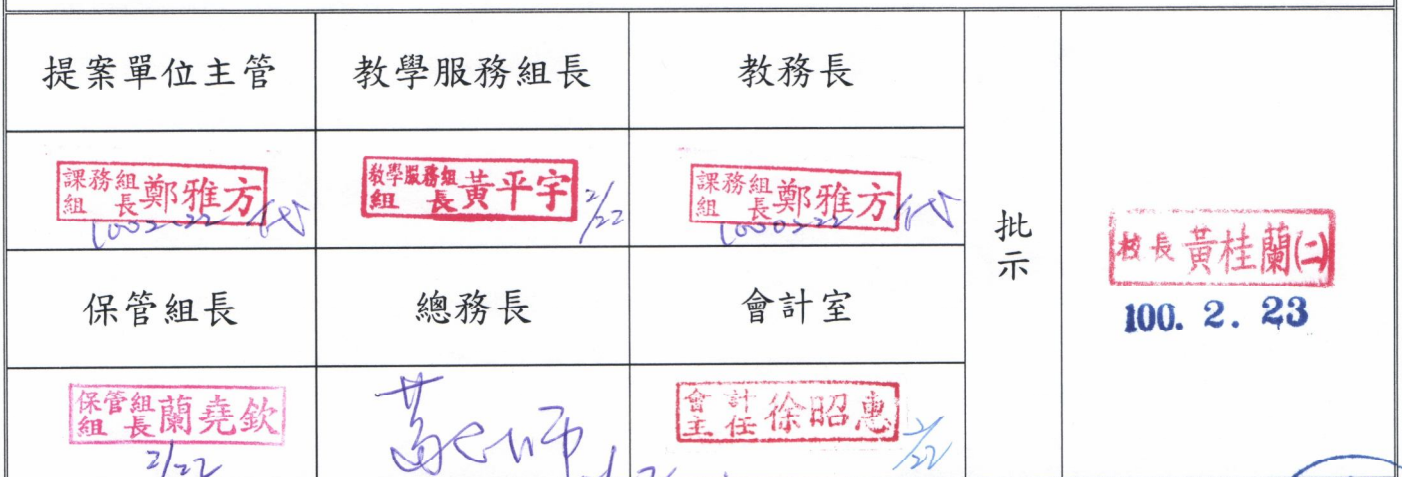 提案單位主管
教學服務組長
教務長
課務組
組長鄭雅方
1000222 代
教學服務組
組長黃平宇
2/22
課務組
組長鄭雅方
1000222 代
批示
校長黃桂蘭(二)
100. 2. 23
保管組長
總務長
會計室
保管組
組長蘭堯欽
2/22
會計
主任徐昭惠
2/22